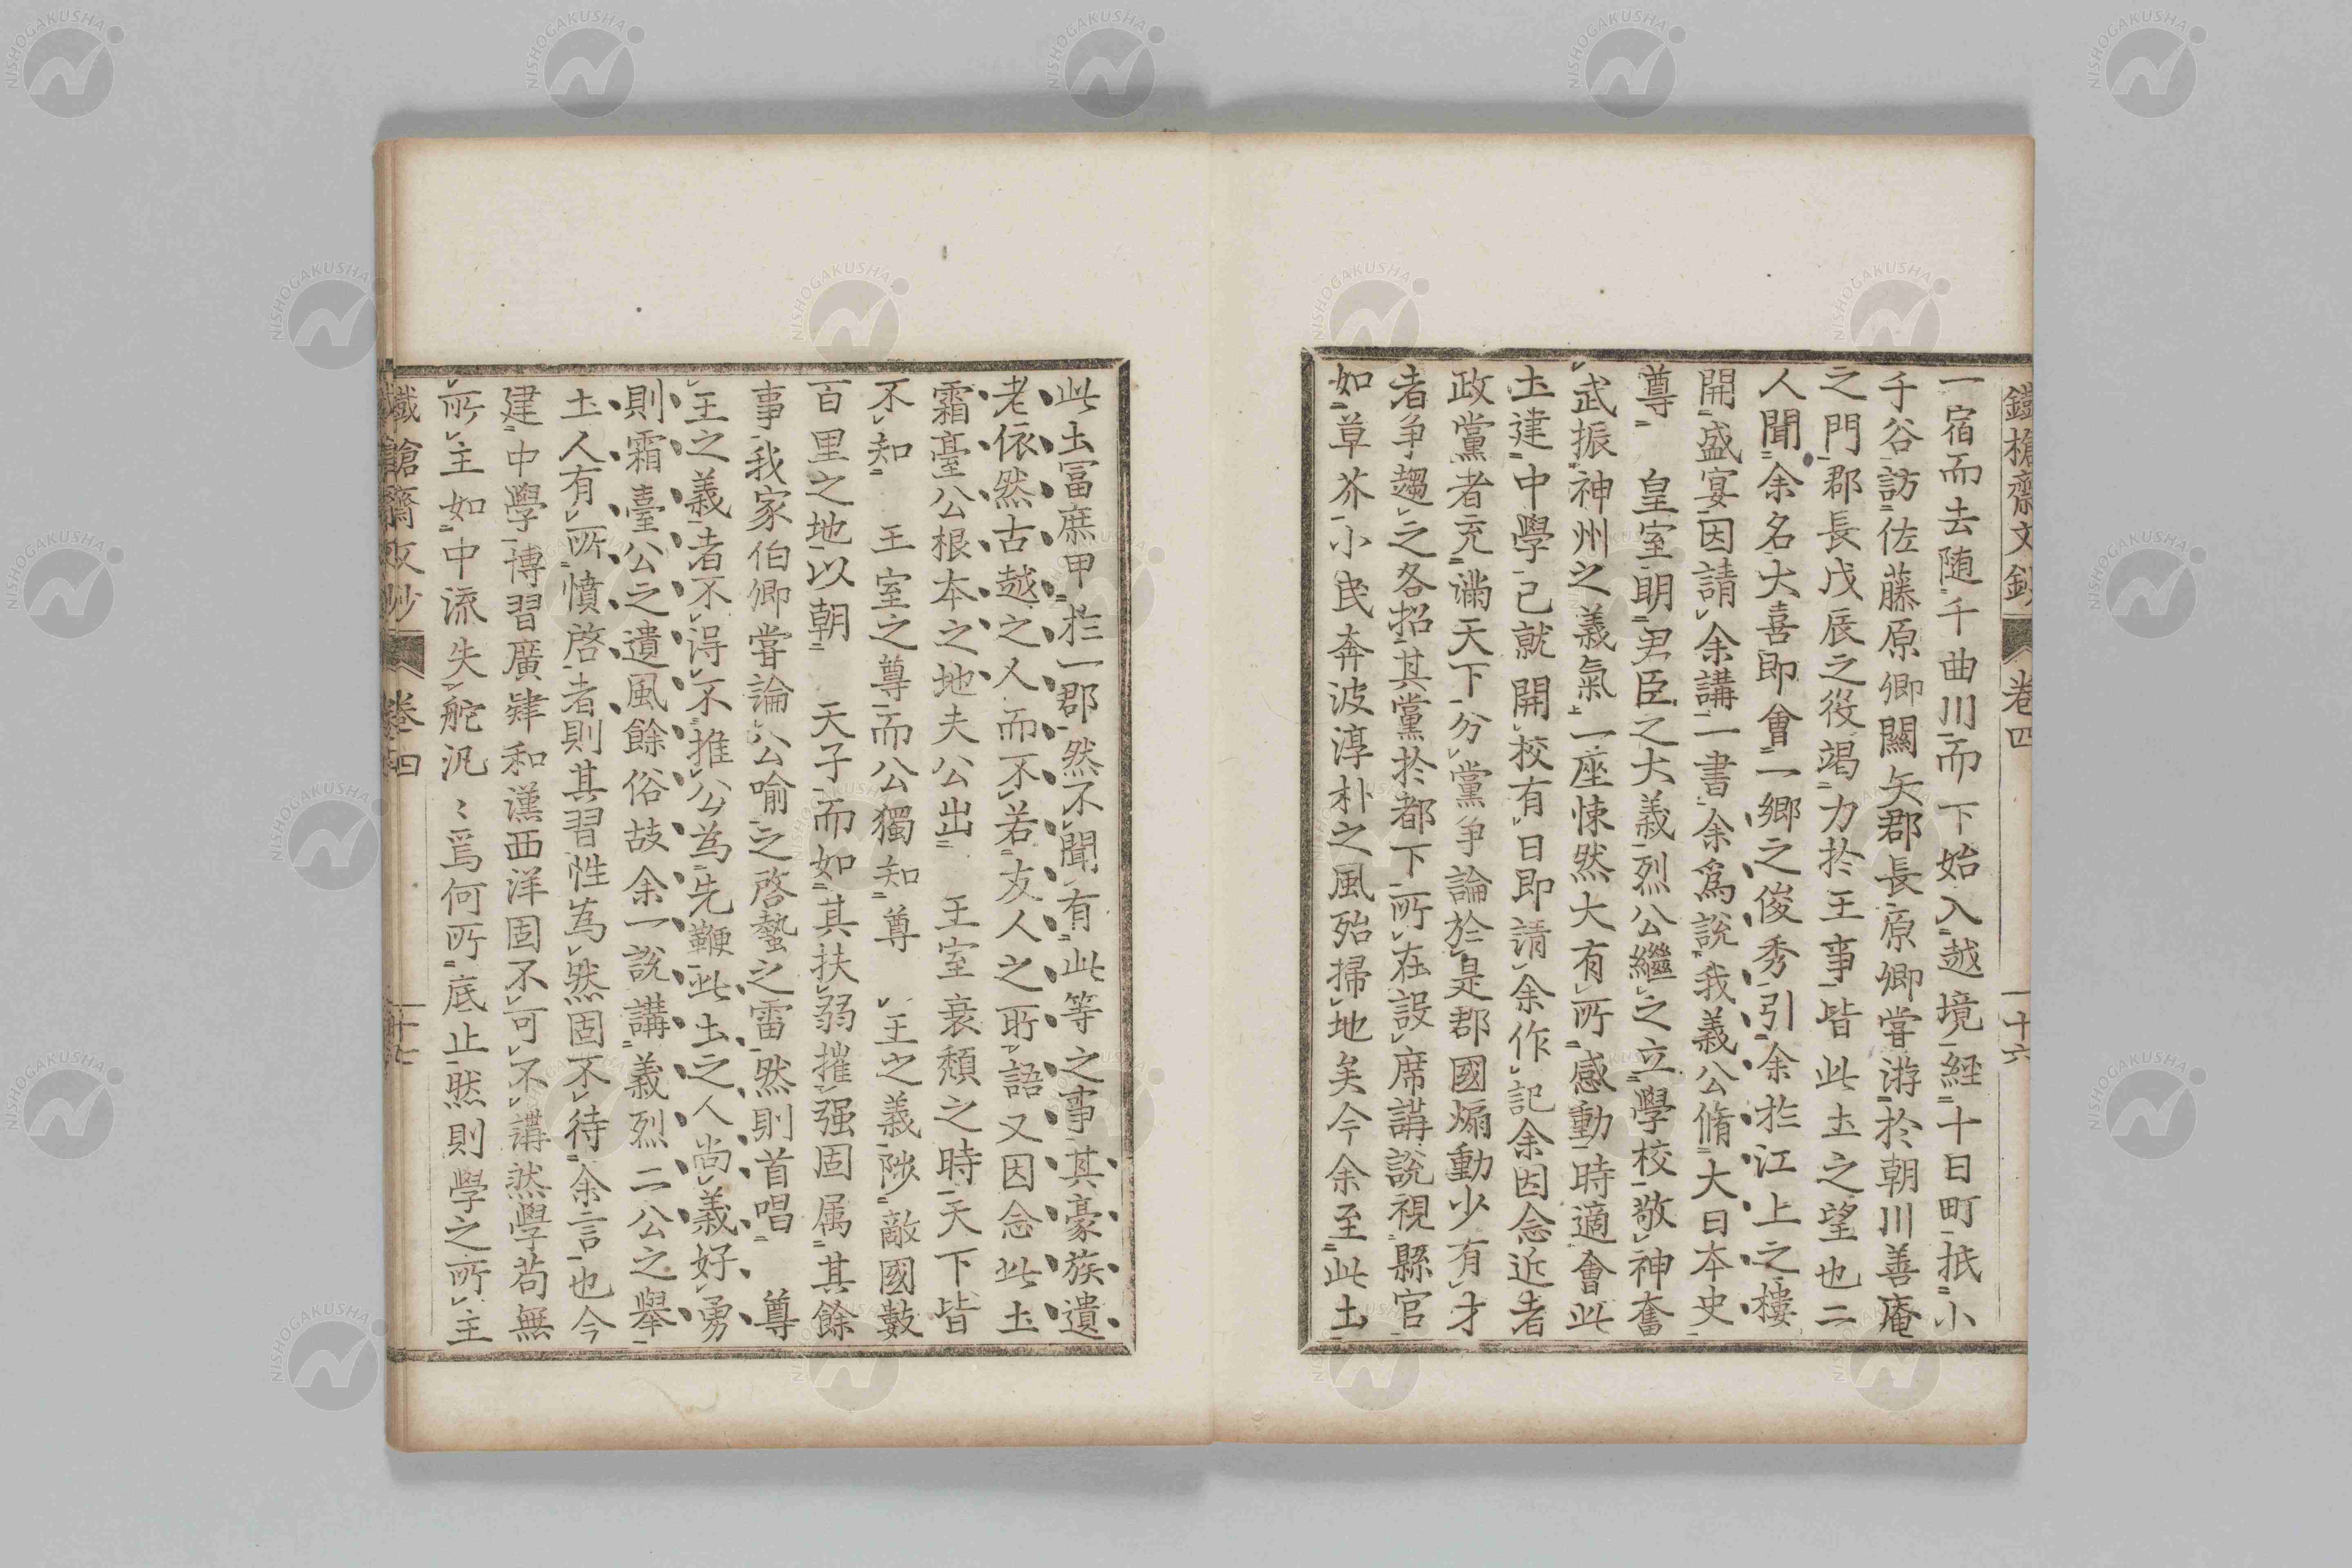 鐵槍齋文鈔 卷四 一十六
一宿而去随千曲川而下始入越境経十日町抵小
千谷訪佐藤原卿關矢郡長原卿嘗游於朝川善庵
之門郡長戊辰之役竭力於王事皆此土之望也二
人聞余名大喜即會一郷之俊秀引余於江上之樓
開盛宴因請余講一書余爲説我義公脩大日本史
尊 皇室明君臣之大義烈公繼之立學校敬神奮
武振神州之義氣一座悚然大有所感動時適會此
土建中學已就開校有日即請余作記余因念近者
政黨者充滿天下分黨爭論於是郡國煽動少有才
者争趨之各招其黨於都下所在設席講説視縣官
如草芥小民奔波淳朴之風殆掃地矣今余至此土
此土冨庶甲於一郡然不聞有此等之事其豪族遺
老依然古越之人而不若友人之所語又因念此土
霜臺公根本之地夫公出 王室衰頽之時天下皆
不知 王室之尊而公獨知尊 王之義陟敵國數
百里之地以朝 天子而如其扶弱摧强固属其餘
事我家伯卿嘗論公喻之啓蟄之雷然則首唱 尊
王之義者不得不推公為先鞭此土之人尚義好勇
則霜臺公之遺風餘俗故余一説講義烈二公之舉
土人有所憤啓者則其習性為然固不待余言也今
建中學博習廣肄和漢西洋固不可不講然學苟無
所主如中流失舵汎〻焉何所底止然則學之所主
鐵槍齋文鈔 卷四 一十七
NISHOGAKUSHA